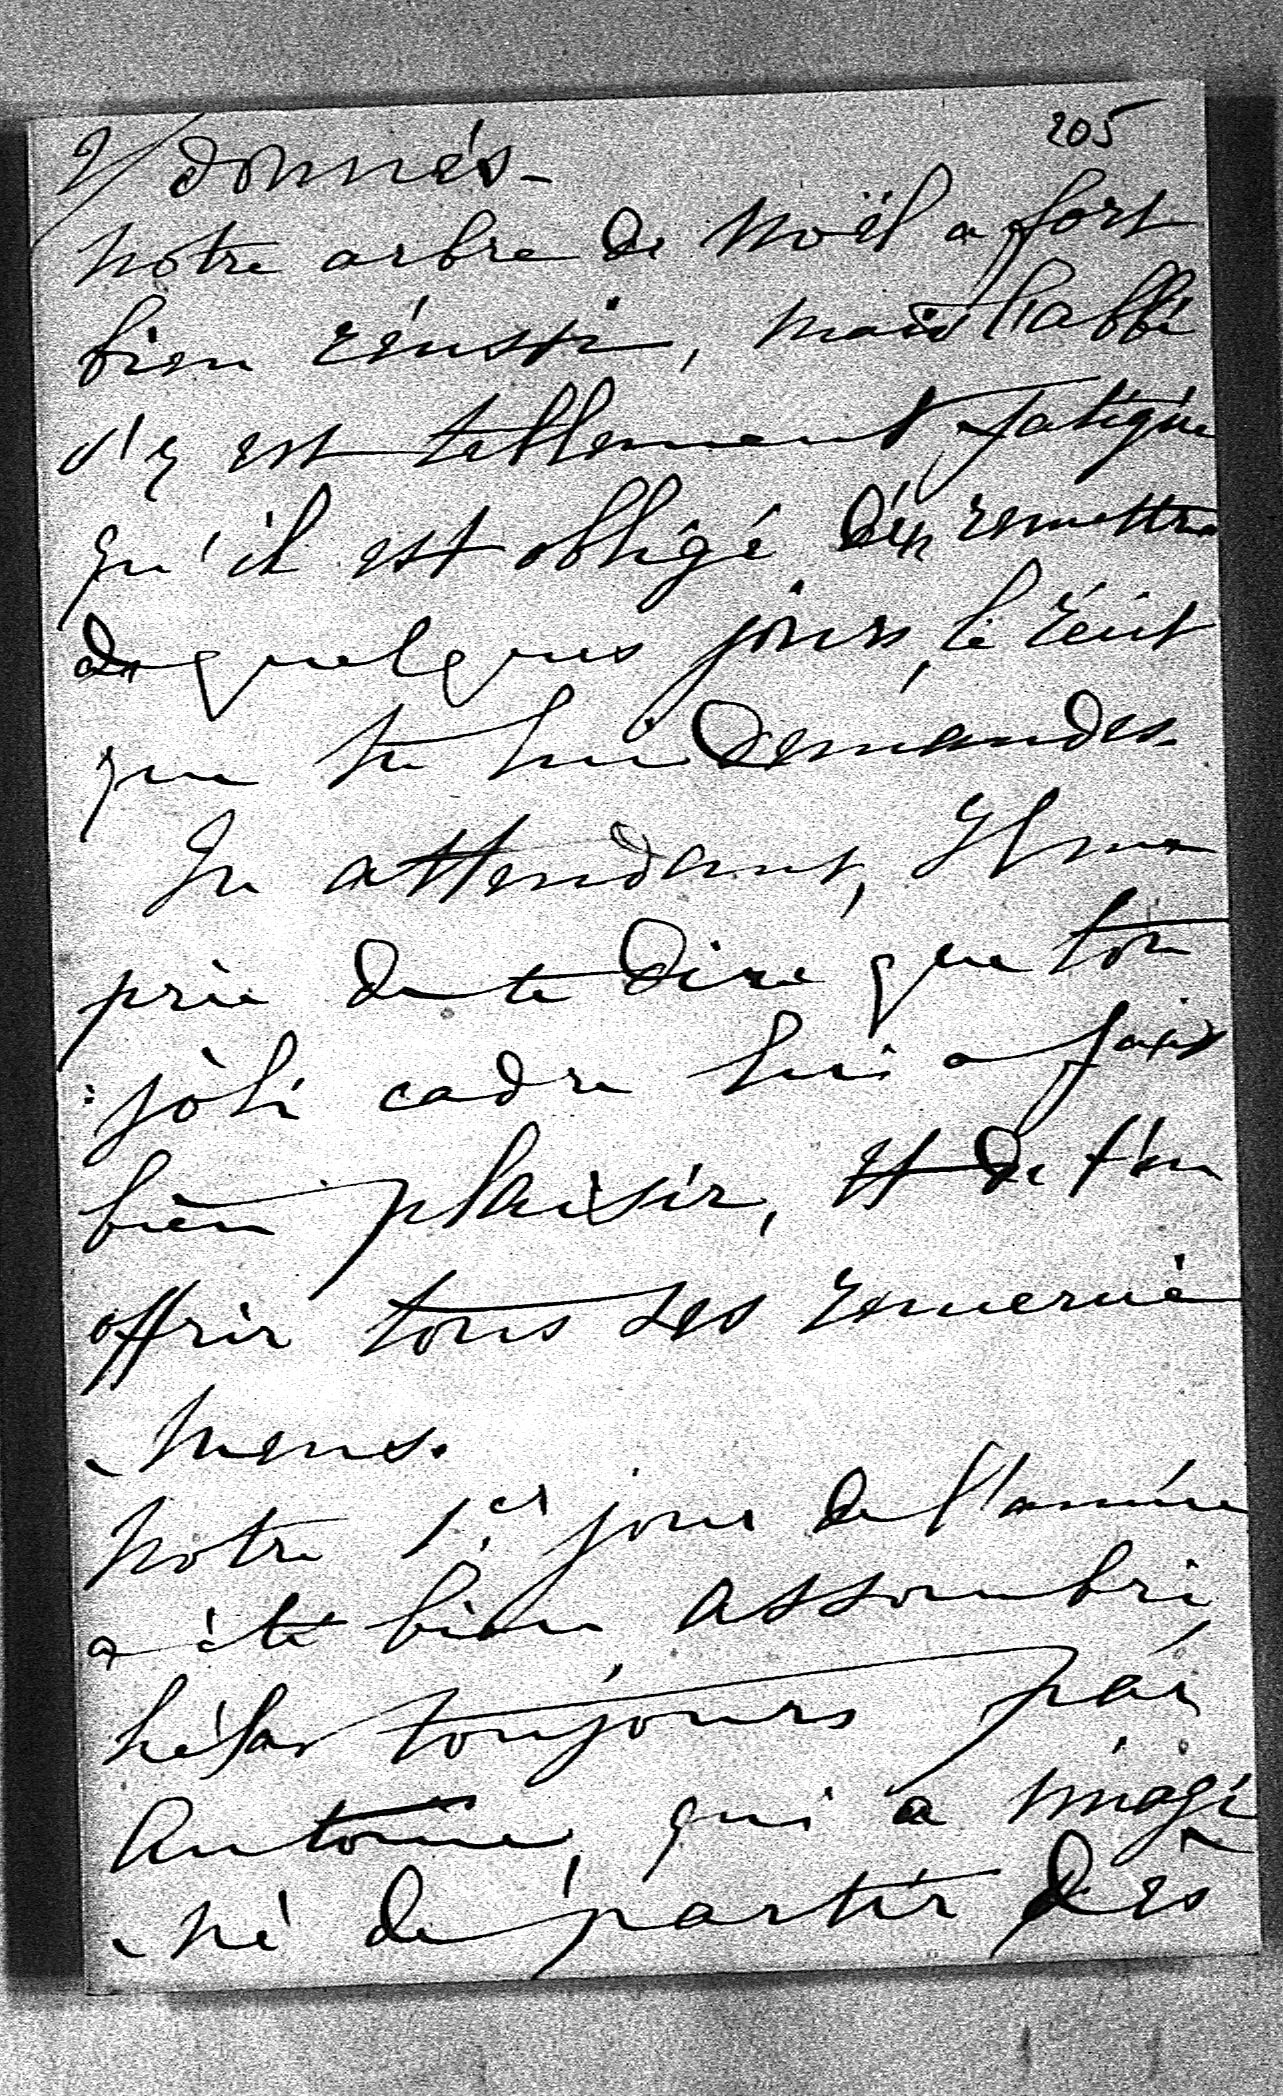 205
2/ donnés -
Notre arbre de Noël a fort
bien réussi, mais l'abbé
s'y est tellement fatigué
qu'il est obligé d'en remettre
de quelques jours, le récit
que tu lui demandes.
En attendant, Il me
prie de te dire que ton
joli cadre lui a fait
bien plaisir, et de t'en
offrir tous ses remercie
-mens.
Notre 1er jour de l'année
a été bien assombri,
hélas toujours par
Antoine, qui a imagi
-né de partir dès